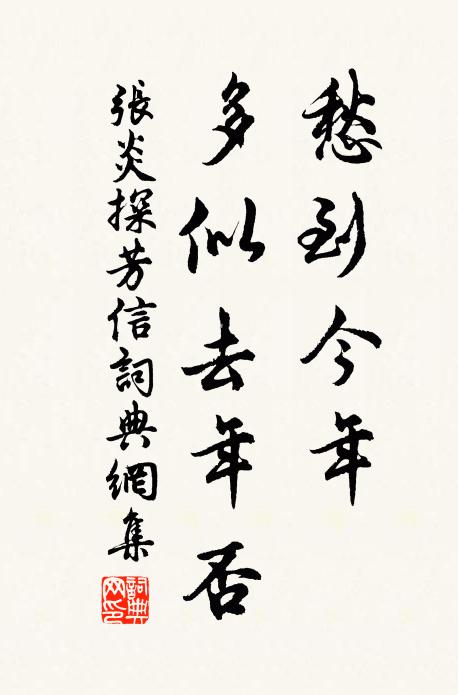 愁到今年
多似去年否
張炎探芳信詞典網集
詞典網印